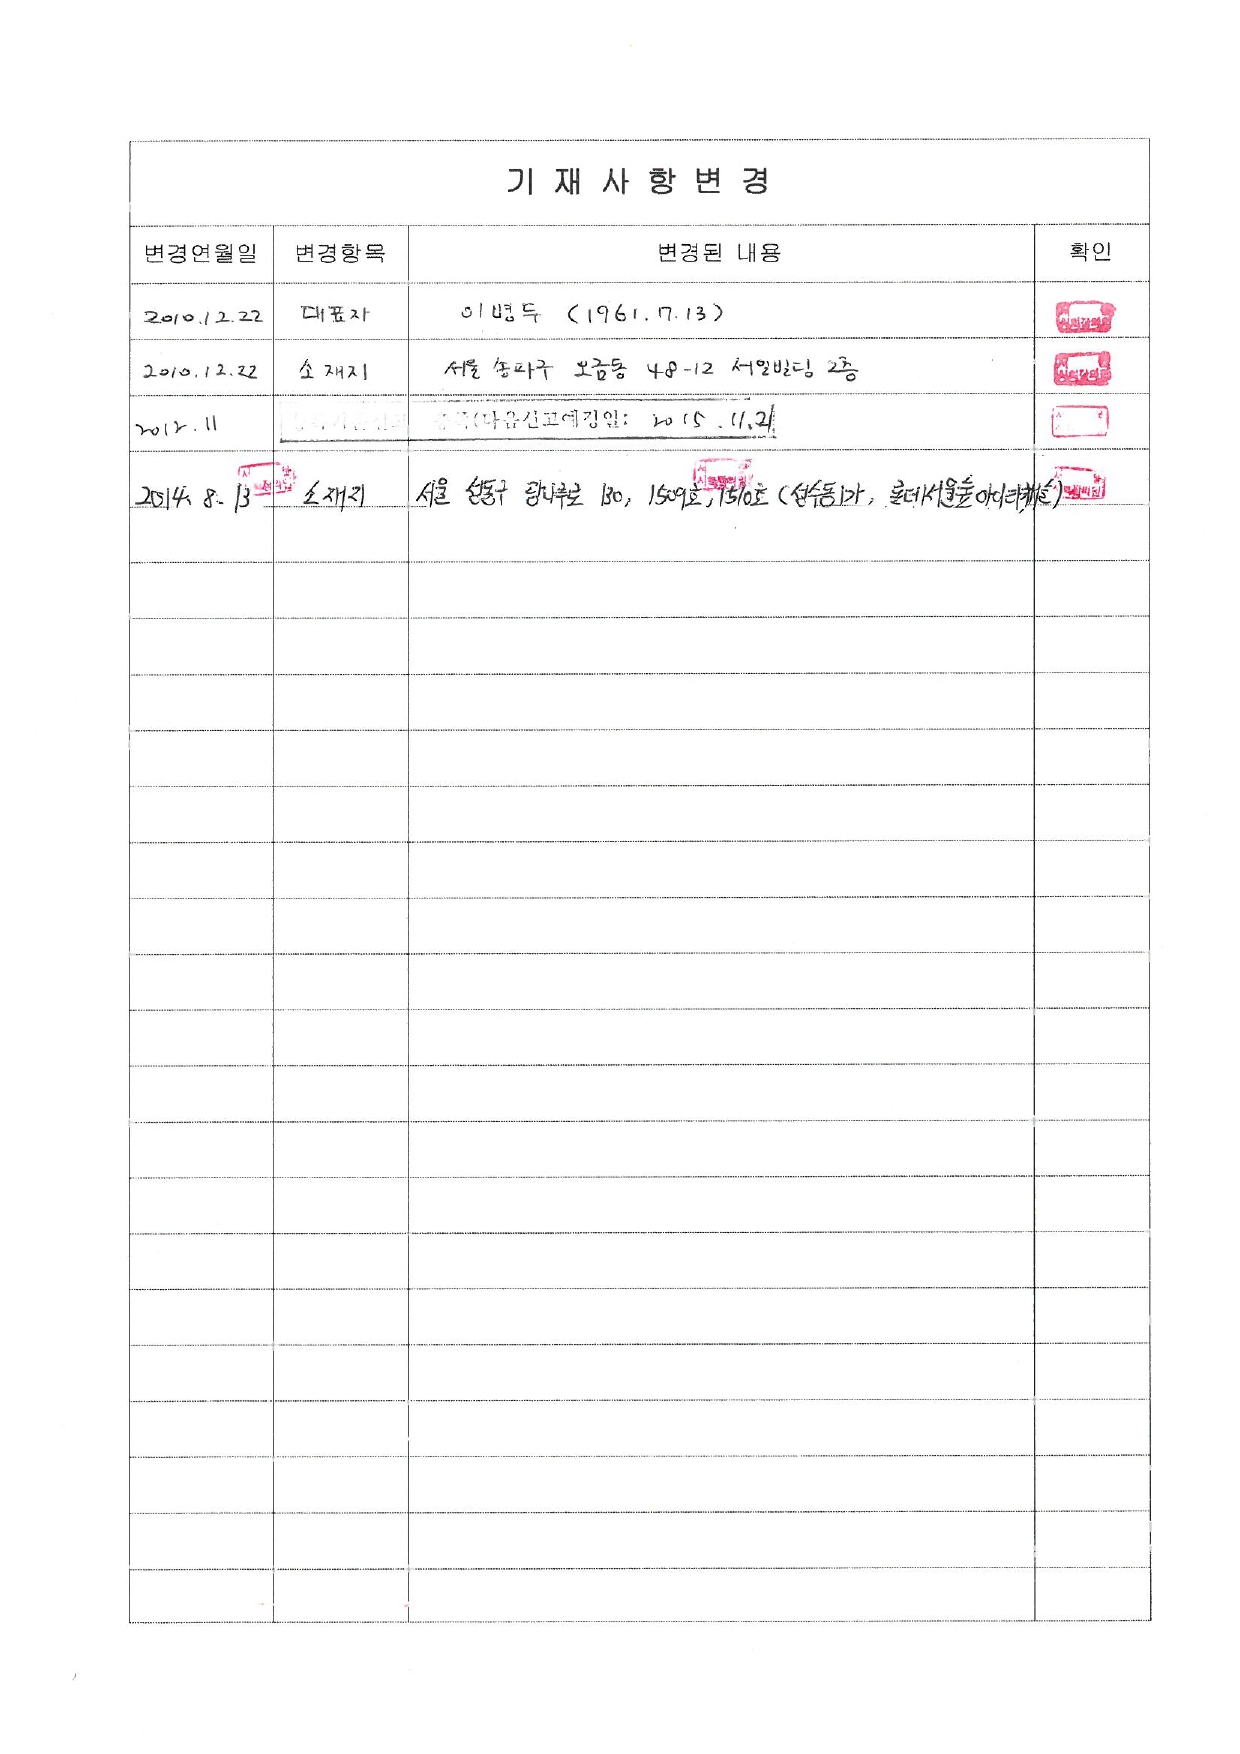 기재사항변경
변경연월일 변경항목 변경된 내용 확인
2010.12.22 대표자 이병두 (1961.7.13)
2010.12.22 소재지 서울 송파구 오금동 48-12 서일빌딩 2층
2012.11 (다음신고예정일: 2015.11.21
2014. 8. 13 소재지 서울 성동구 광나루로 130, 1509호, 1510호 (성수동1가,